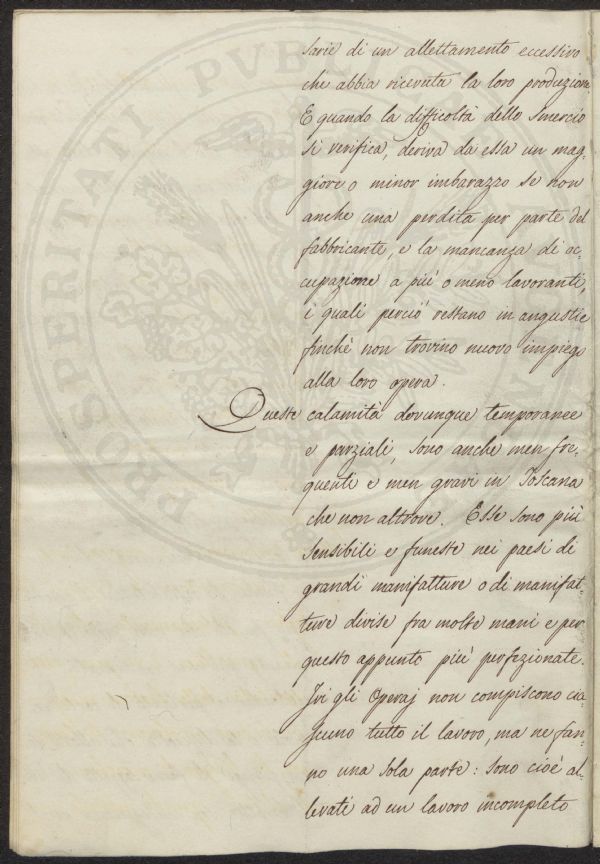 sarie di un allettamento eccessivo
che abbia ricevuta la loro produzione
E quando la difficoltà dello smercio
si verifica, deriva da essa un mag-
giore o minor imbarazzo se non
anche una perdita per parte del
fabbricante, e la mancanza di oc-
cupazione a più o meno lavoranti,
i quali perciò restano in angustie
finchè non trovino nuovo impiego
alla loro opera.
Queste calamità dovunque temporanee
e parziali, sono anche men fre-
quenti e men gravi in Toscana
che non altrove. Esse sono più
sensibili e funeste nei paesi di
grandi manifatture o di manifat-
ture divise fra molte mani e per
questo appunto più perfezionate.
Ivi gli Operaj non compiscono cia-
scuno tutto il lavoro, ma ne fan-
no una sola parte: sono cioè al-
levati ad un lavoro incompleto
PROSPERITATI PVBL